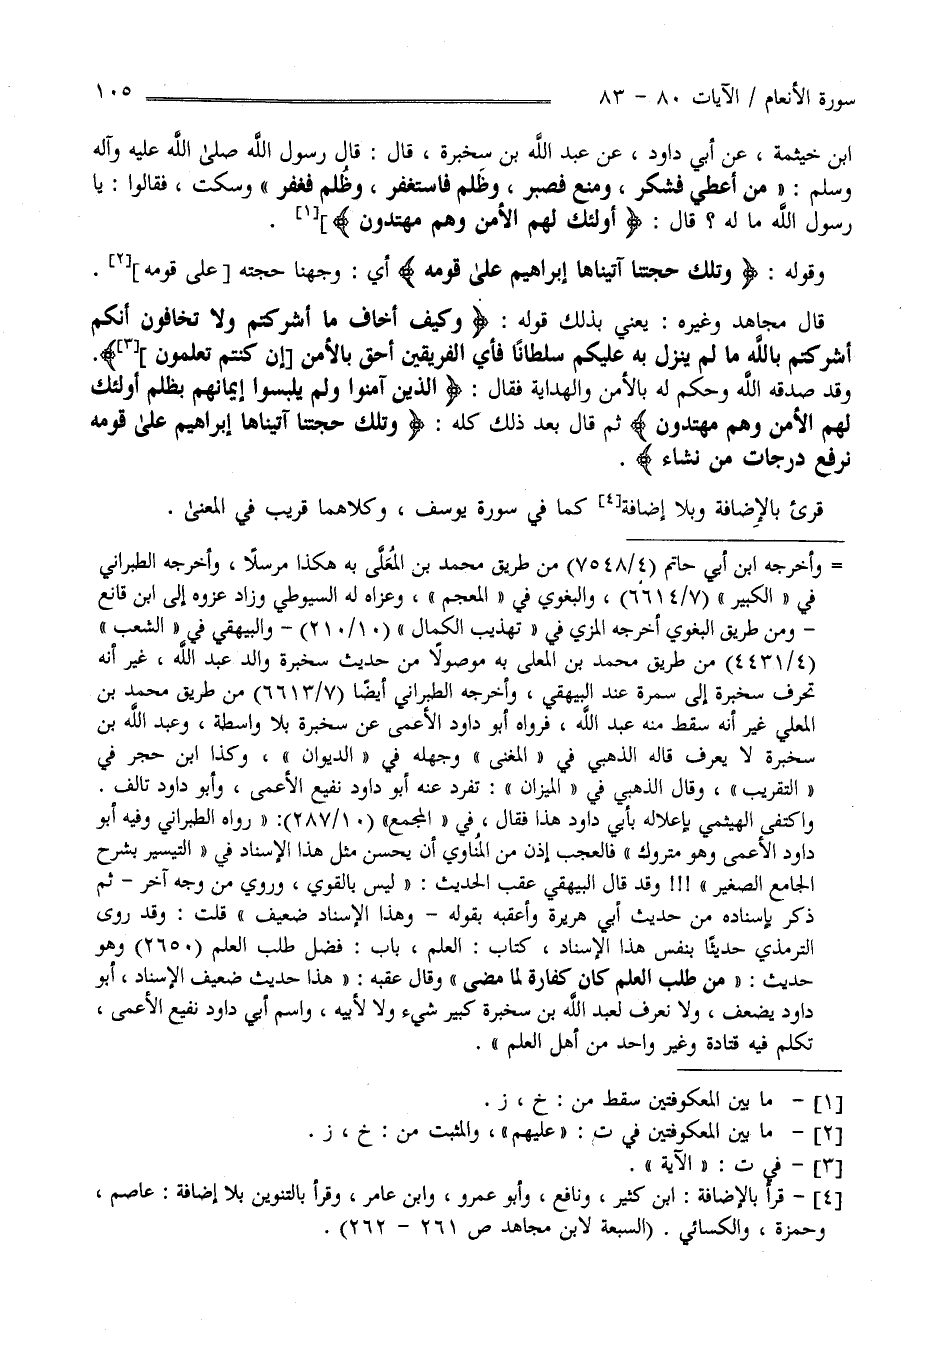 سورة الأنعام / الآيات ٨٠ – ٨٣ ١٠٥
ابن خيثمة ، عن أبي داود ، عن عبد اللَّه بن سخبرة ، قال : قال رسول اللَّه صلىٰ اللَّه عليه وآله
وسلم : « من أعطي فشكر ، ومنع فصبر ، وظَلم فاستغفر ، وظُلم فغفر » وسكت ، فقالوا : يا
رسول اللَّه ما له ؟ قال : ﴿ أولئك لهم الأمن وهم مهتدون ﴾][١] .
وقوله : ﴿ وتلك حجتنا آتيناها إبراهيم علىٰ قومه ﴾ أي : وجهنا حجته [على قومه][٢] .
قال مجاهد وغيره : يعني بذلك قوله : ﴿ وكيف أخاف ما أشركتم ولا تخافون أنكم
أشركتم باللَّه ما لم ينزل به عليكم سلطانًا فأي الفريقين أحق بالأمن [إن كنتم تعلمون ][٣]﴾.
وقد صدقه اللَّه وحكم له بالأمن والهداية فقال : ﴿ الذين آمنوا ولم يلبسوا إيمانهم بظلم أولئك
لهم الأمن وهم مهتدون ﴾ ثم قال بعد ذلك كله : ﴿ وتلك حجتنا آتيناها إبراهيم علىٰ قومه
نرفع درجات من نشاء ﴾ .
قرئ بالإضافة وبلا إضافة[٤] كما في سورة يوسف ، وكلاهما قريب في المعنىٰ .
= وأخرجه ابن أبي حاتم (٧٥٤٨/٤) من طريق محمد بن المُعَلَّى به هكذا مرسلًا ، وأخرجه الطبراني
في « الكبير » (٦٦١٤/٧) ، والبغوي في « المعجم » ، وعزاه له السيوطي وزاد عزوه إلى ابن قانع
– ومن طريق البغوي أخرجه المزي في « تهذيب الكمال » (٢١٠/١٠) – والبيهقي في « الشعب »
(٤٤٣١/٤) من طريق محمد بن المعلى به موصولًا من حديث سخبرة والد عبد اللَّه ، غير أنه
تحرف سخبرة إلى سمرة عند البيهقي ، وأخرجه الطبراني أيضًا (٦٦١٣/٧) من طريق محمد بن
المعلي غير أنه سقط منه عبد اللَّه ، فرواه أبو داود الأعمى عن سخبرة بلا واسطة ، وعبد اللَّه بن
سخبرة لا يعرف قاله الذهبي في « المغنى » وجهله في « الديوان » ، وكذا ابن حجر في
« التقريب » ، وقال الذهبي في « الميزان » : تفرد عنه أبو داود نفيع الأعمى ، وأبو داود تالف .
واكتفى الهيثمي بإعلاله بأبي داود هذا فقال ، في « المجمع» (٢٨٧/١٠): « رواه الطبراني وفيه أبو
داود الأعمى وهو متروك » فالعجب إذن من المُناوي أن يحسن مثل هذا الإسناد في « التيسير بشرح
الجامع الصغير » !!! وقد قال البيهقي عقب الحديث : « ليس بالقوي ، وروي من وجه آخر – ثم
ذكر بإسناده من حديث أبي هريرة وأعقبه بقوله – وهذا الإسناد ضعيف » قلت : وقد روى
الترمذي حديثًا بنفس هذا الإسناد ، كتاب : العلم ، باب : فضل طلب العلم (٢٦٥٠) وهو
حديث : « من طلب العلم كان كفارة لما مضى » وقال عقبه : « هذا حديث ضعيف الإسناد ، أبو
داود يضعف ، ولا نعرف لعبد اللَّه بن سخبرة كبير شيء ولا لأبيه ، واسم أبي داود نفيع الأعمى ،
تكلم فيه قتادة وغير واحد من أهل العلم » .
[١] – ما بين المعكوفتين سقط من : خ ، ز .
[٢] – ما بين المعكوفتين في ت : «عليهم»، والمثبت من : خ ، ز .
[٣] – في ت : « الآية » .
[٤] – قرأ بالإضافة : ابن كثير ، ونافع ، وأبو عمرو ، وابن عامر ، وقرأ بالتنوين بلا إضافة : عاصم ،
وحمزة ، والكسائي . (السبعة لابن مجاهد ص ٢٦١ – ٢٦٢) .